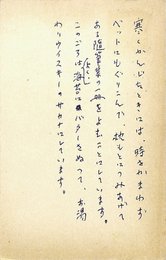 寒くかんじたときには、時をかまわず
ベットにもぐりこんで、枕もとにつみあげて
ある随筆集の一册をよむことにしています。
このごろは海苔にバターをぬって、お湯
わりウイスキーのサカナにしています。